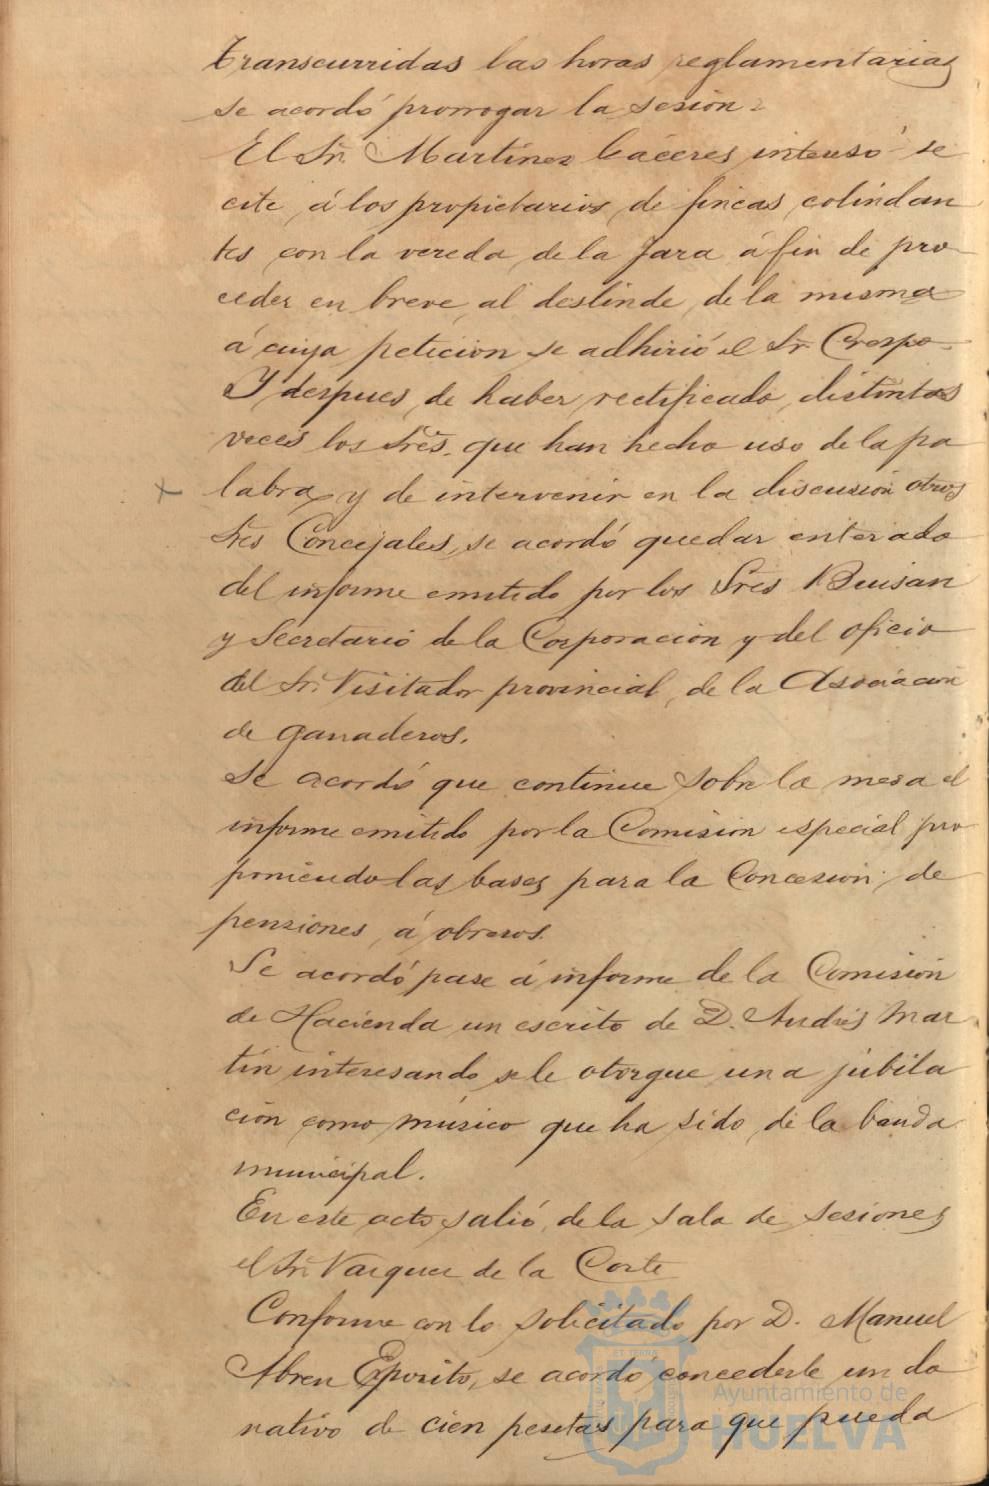 transcurridas las horas reglamentarias
se acordó prorrogar la sesion.
El Sr. Martinez Cáceres interesó se
cite á los propietarios de fincas colindan
tes con la vereda de la Jara á fin de pro
ceder en breve al deslinde de la misma
á cuya peticion se adhirió el Sr. Crespo.
Y despues de haber rectificado distintas
veces los Sres. que han hecho uso de la pa
labra y de intervenir en la discusion otros
Sres Concejales, se acordó quedar enterado
del informe emitido por los Sres Buisan
y Secretario de la Corporacion y del oficio
del Sr. Visitador provincial de la Asociacion
de ganaderos.
Se acordó que continue sobre la mesa el
informe emitido por la Comision especial pro
poniendo las bases para la Concesion de
pensiones á obreros.
Se acordó pase á informe de la Comision
de Hacienda un escrito de D. Andrés Mar
tin interesando se le otorgue una jubila
cion como músico que ha sido de la banda
municipal.
En este acto salió de la sala de sesiones
el Sr. Vazquez de la Corte
Conforme con lo solicitado por D. Manuel
Abreu Exposito, se acordó concederle un do
nativo de cien pesetas para que pueda
Ayuntamiento de
HUELVA